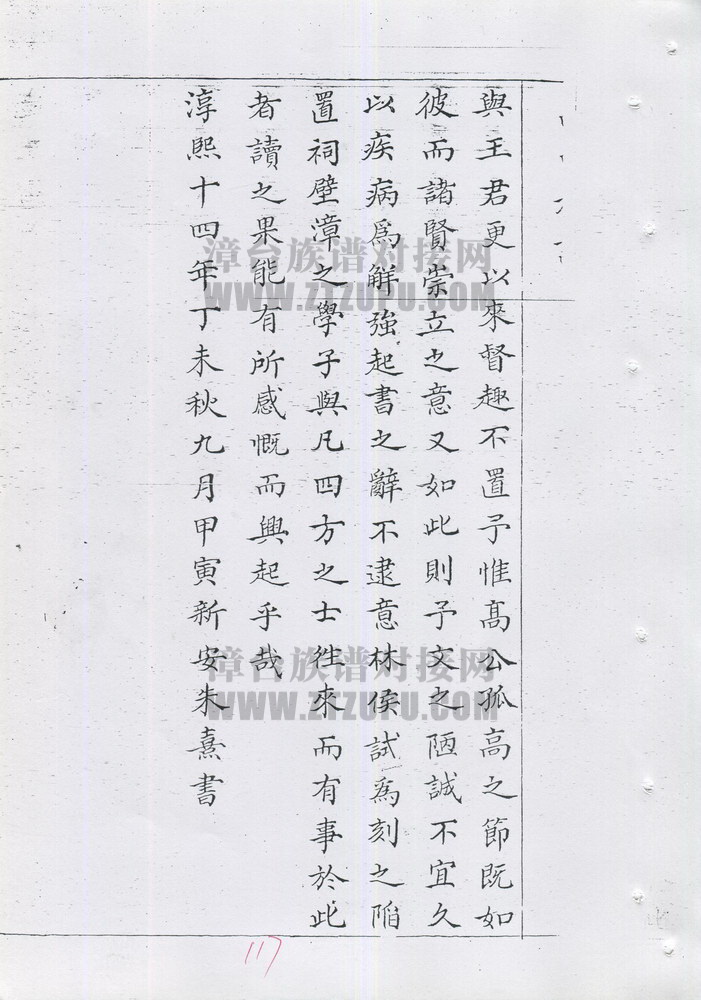 與王君更以來督趣不置予惟高公孤高之節既如
彼而諸賢崇立之意又如此則予文之陋誠不宜久
以疾病爲解強起書之辭不逮意林侯試爲刻之陷
置祠壁漳之學子與凡四方之士徃來而有事於此
者讀之果能有所感慨而興起乎哉
淳熙十四年丁未秋九月甲寅新安朱熹書
漳台族谱对接网
WWW.ZTZUPU.COM
漳台族谱对接网
WWW.ZTZUPU.COM
117